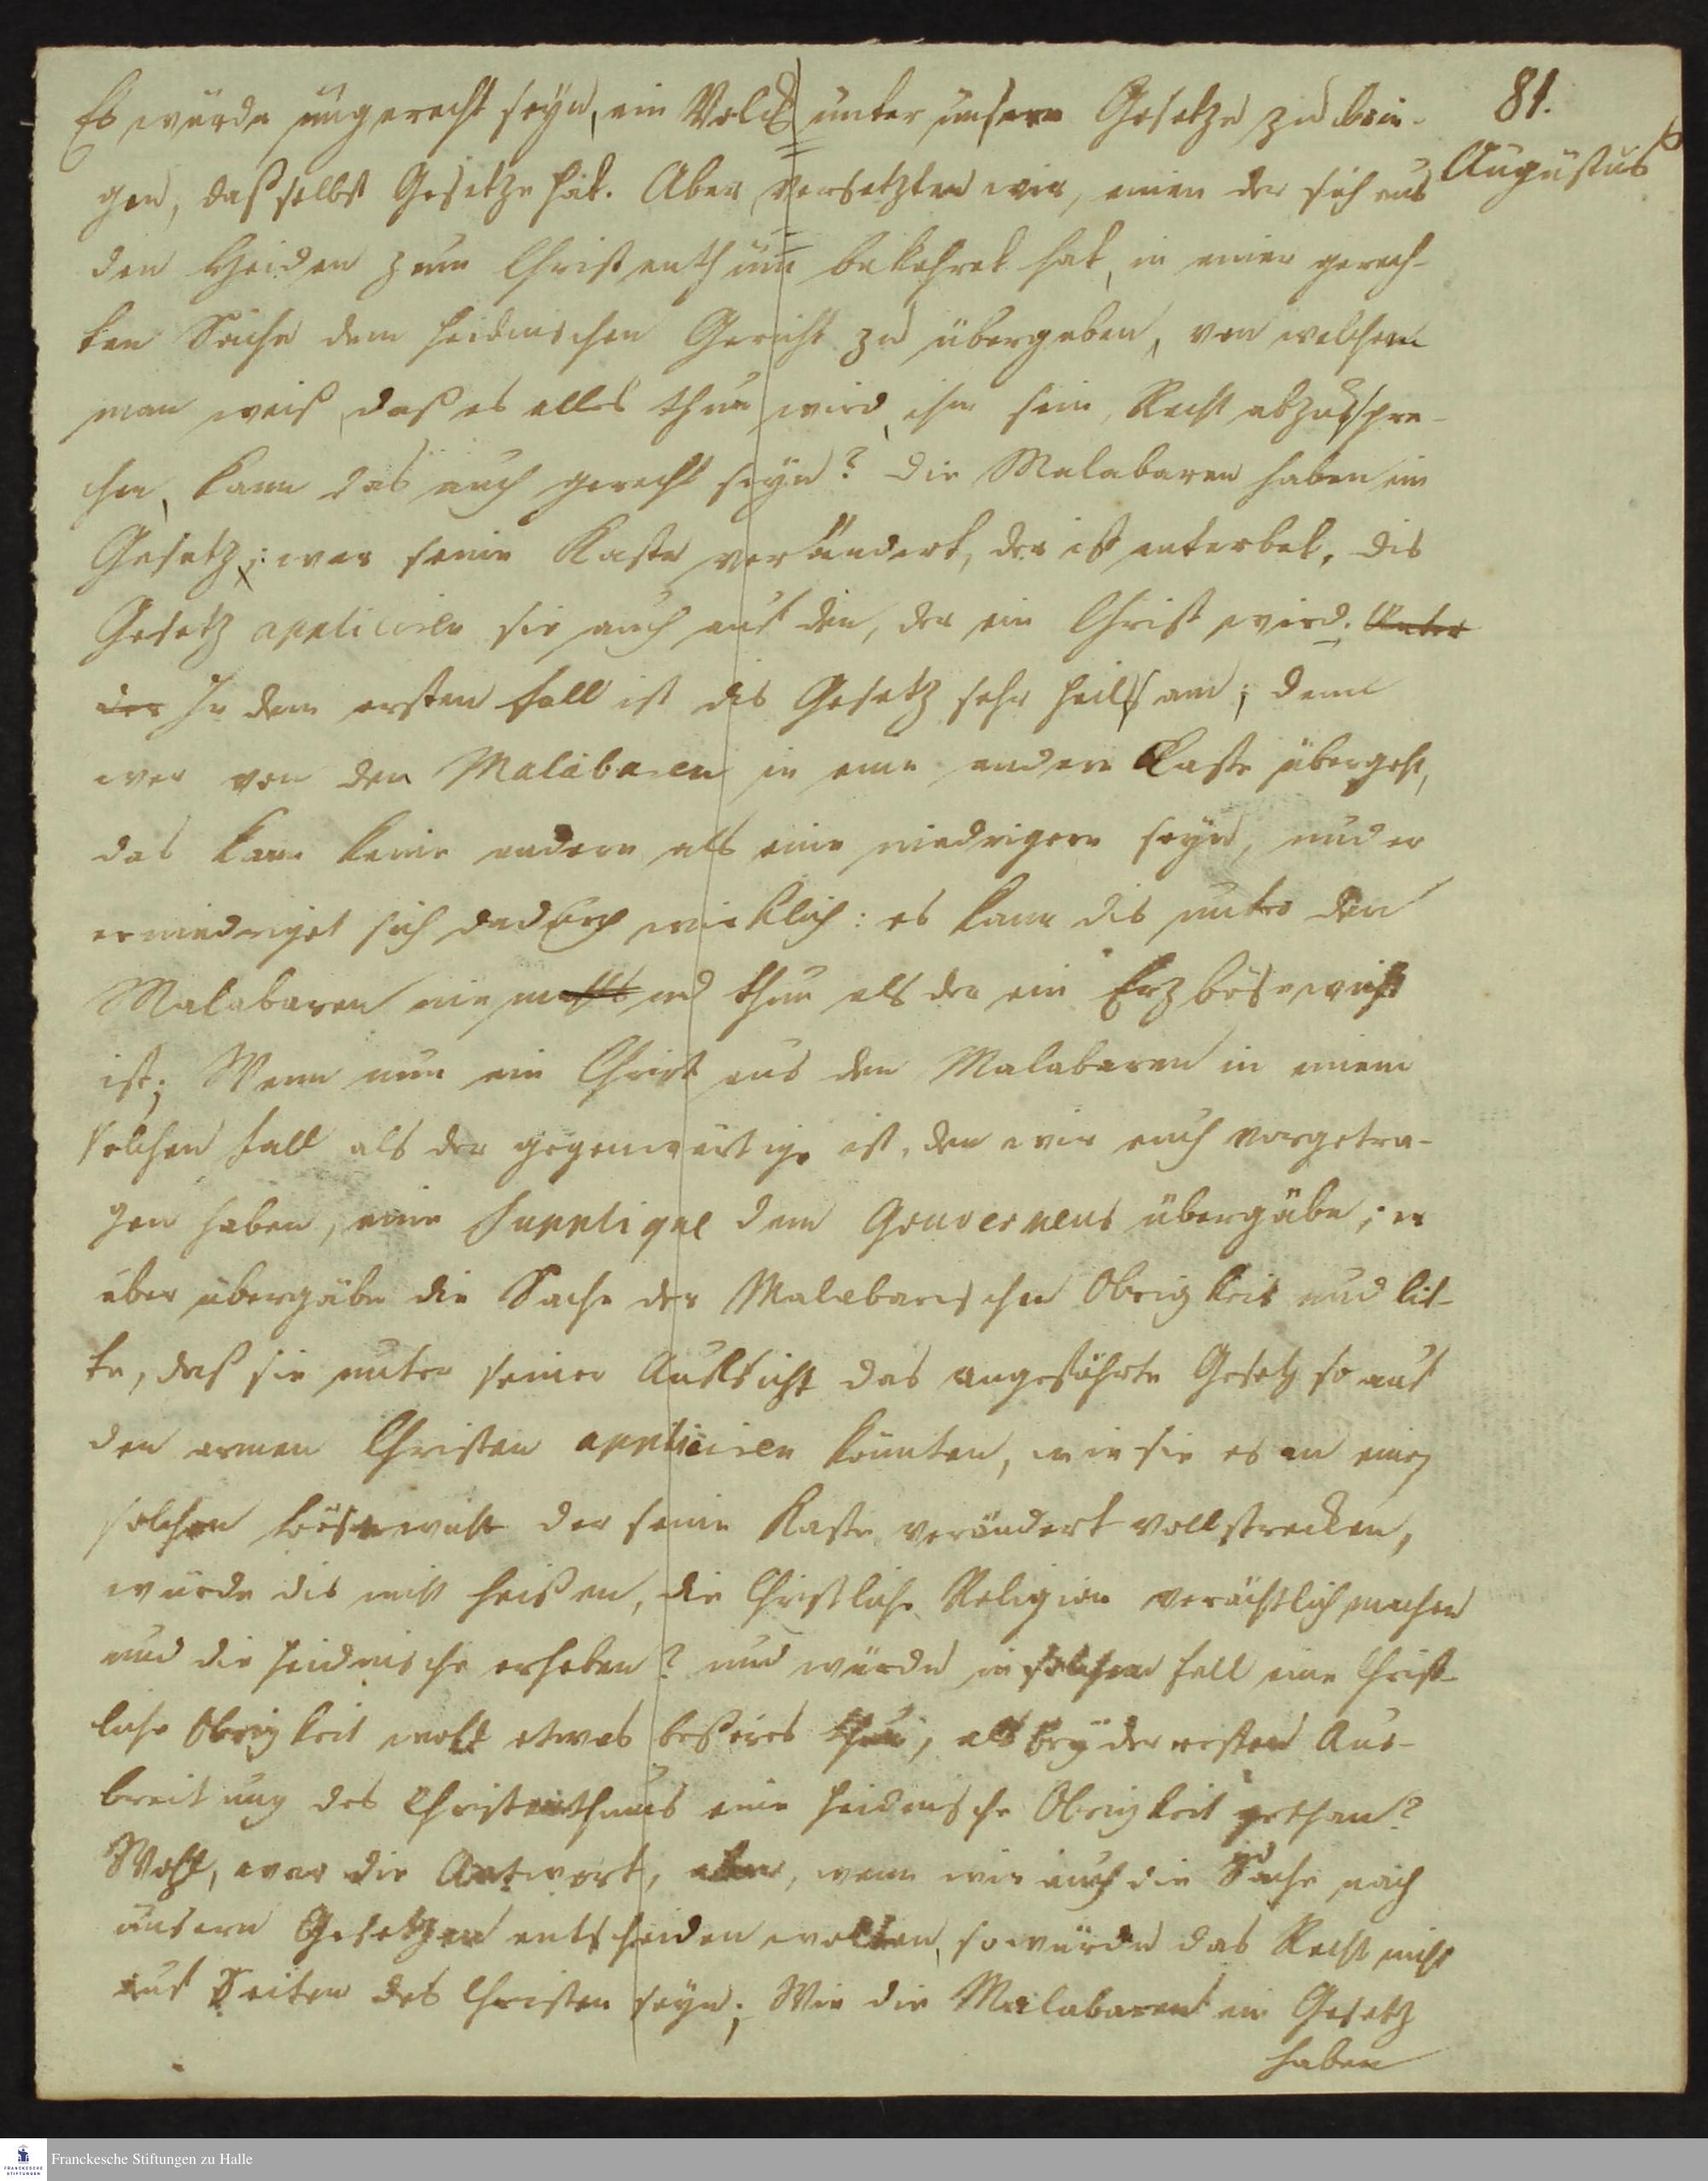 81.
Augustus
Es würde ungerecht seyn, ein Volck unter unsere Gesetze zu brin-
gen, daß selbst Gesetze hat. Aber, versetzten wir, einen der sich aus
den Heiden zum Christenthum bekehret hat, in einer gerech-
ten Sache dem heidnischen Gericht zu übergeben, von welchem
man weiß, daß es alles thun wird, ihm sein Recht abzuspre-
chen, kann das auch gerecht seyn? Die Malabaren haben ein
Gesetz: wer seine Kaste verändert, der ist enterbet. Dis
Gesetz appliciren sie auch auf den, der ein Christ wird. Unter
der In dem ersten Fall ist dis Gesetz sehr heilsam; denn
wer von den Malabaren in eine andere Kaste übergeht,
das kann keine andere als eine niedrigere seyn, und er
erniedriget sich dadurch wircklich: es kann dis unter den
Malabaren niemand thun als der ein Erzbösewicht
ist; Wenn nun ein Christ aus den Malabaren in einem
solchen Fall als der gegenwärtige ist, den wir euch vorgetra-
gen haben, eine Supplique dem Gouverneur übergäbe; er
aber übergäbe die Sache der Malabarischen Obrigkeit und lit-
te, daß sie unter seiner Aufsicht das angeführte Gesetz so auf
den armen Christen appliciren könnten, wie sie es an einem
solchen Bösewicht der seine Kaste verändert vollstrecken,
würde dis nicht heißen, die Christliche Religion verächtlich machen
und die heidnische erheben? und würde in solchem Fall eine Christ-
liche Obrigkeit wohl etwas beßeres thun, als bey der ersten Aus-
breitung des Christenthums eine heidnische Obrigkeit gethan?
Wohl, war die Antwort, aber, wenn wir auch die Sache nach
unsern Gesetzen entscheiden wolten, so würde das Recht nicht
auf Seiten des Christen seyn; Wie die Malabaren ein Gesetz
haben
Franckesche Stiftungen zu Halle